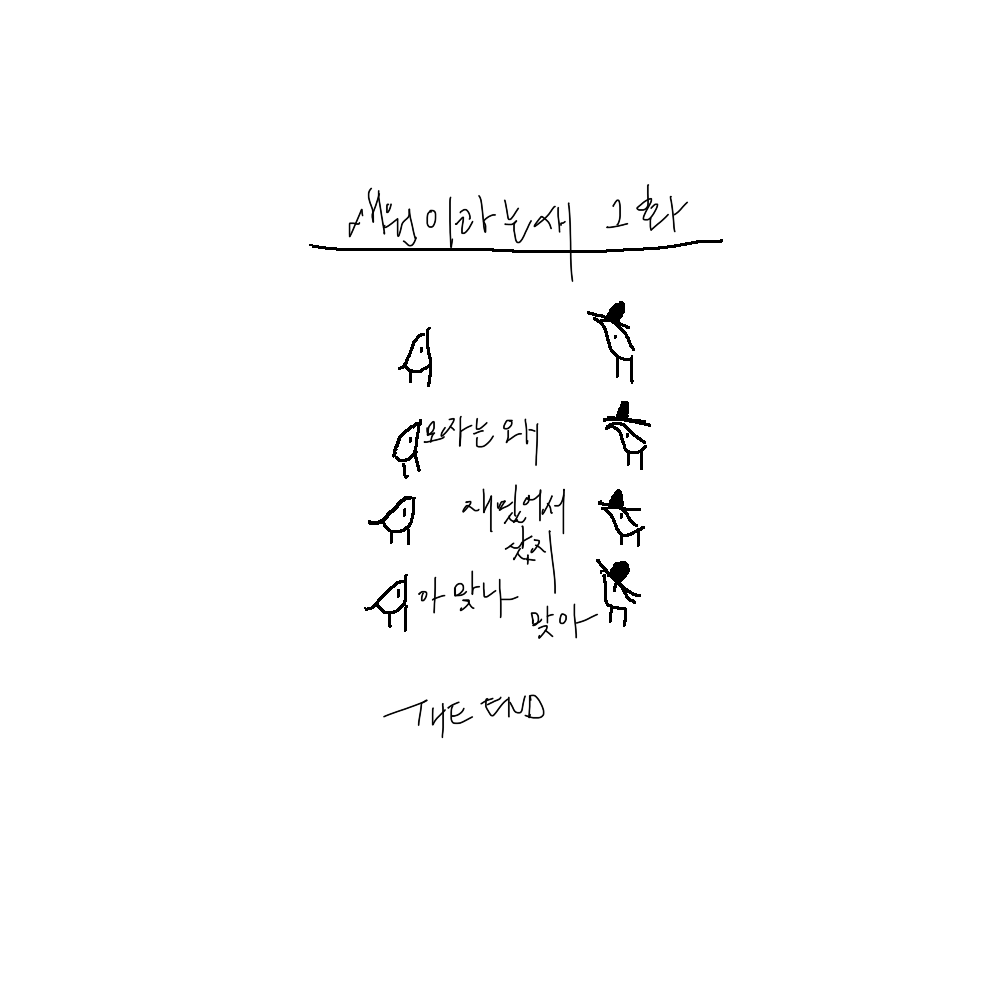 이라는새 1화
모자는 왜
재밌어서
샀지
아 맞나
맞아
THE END